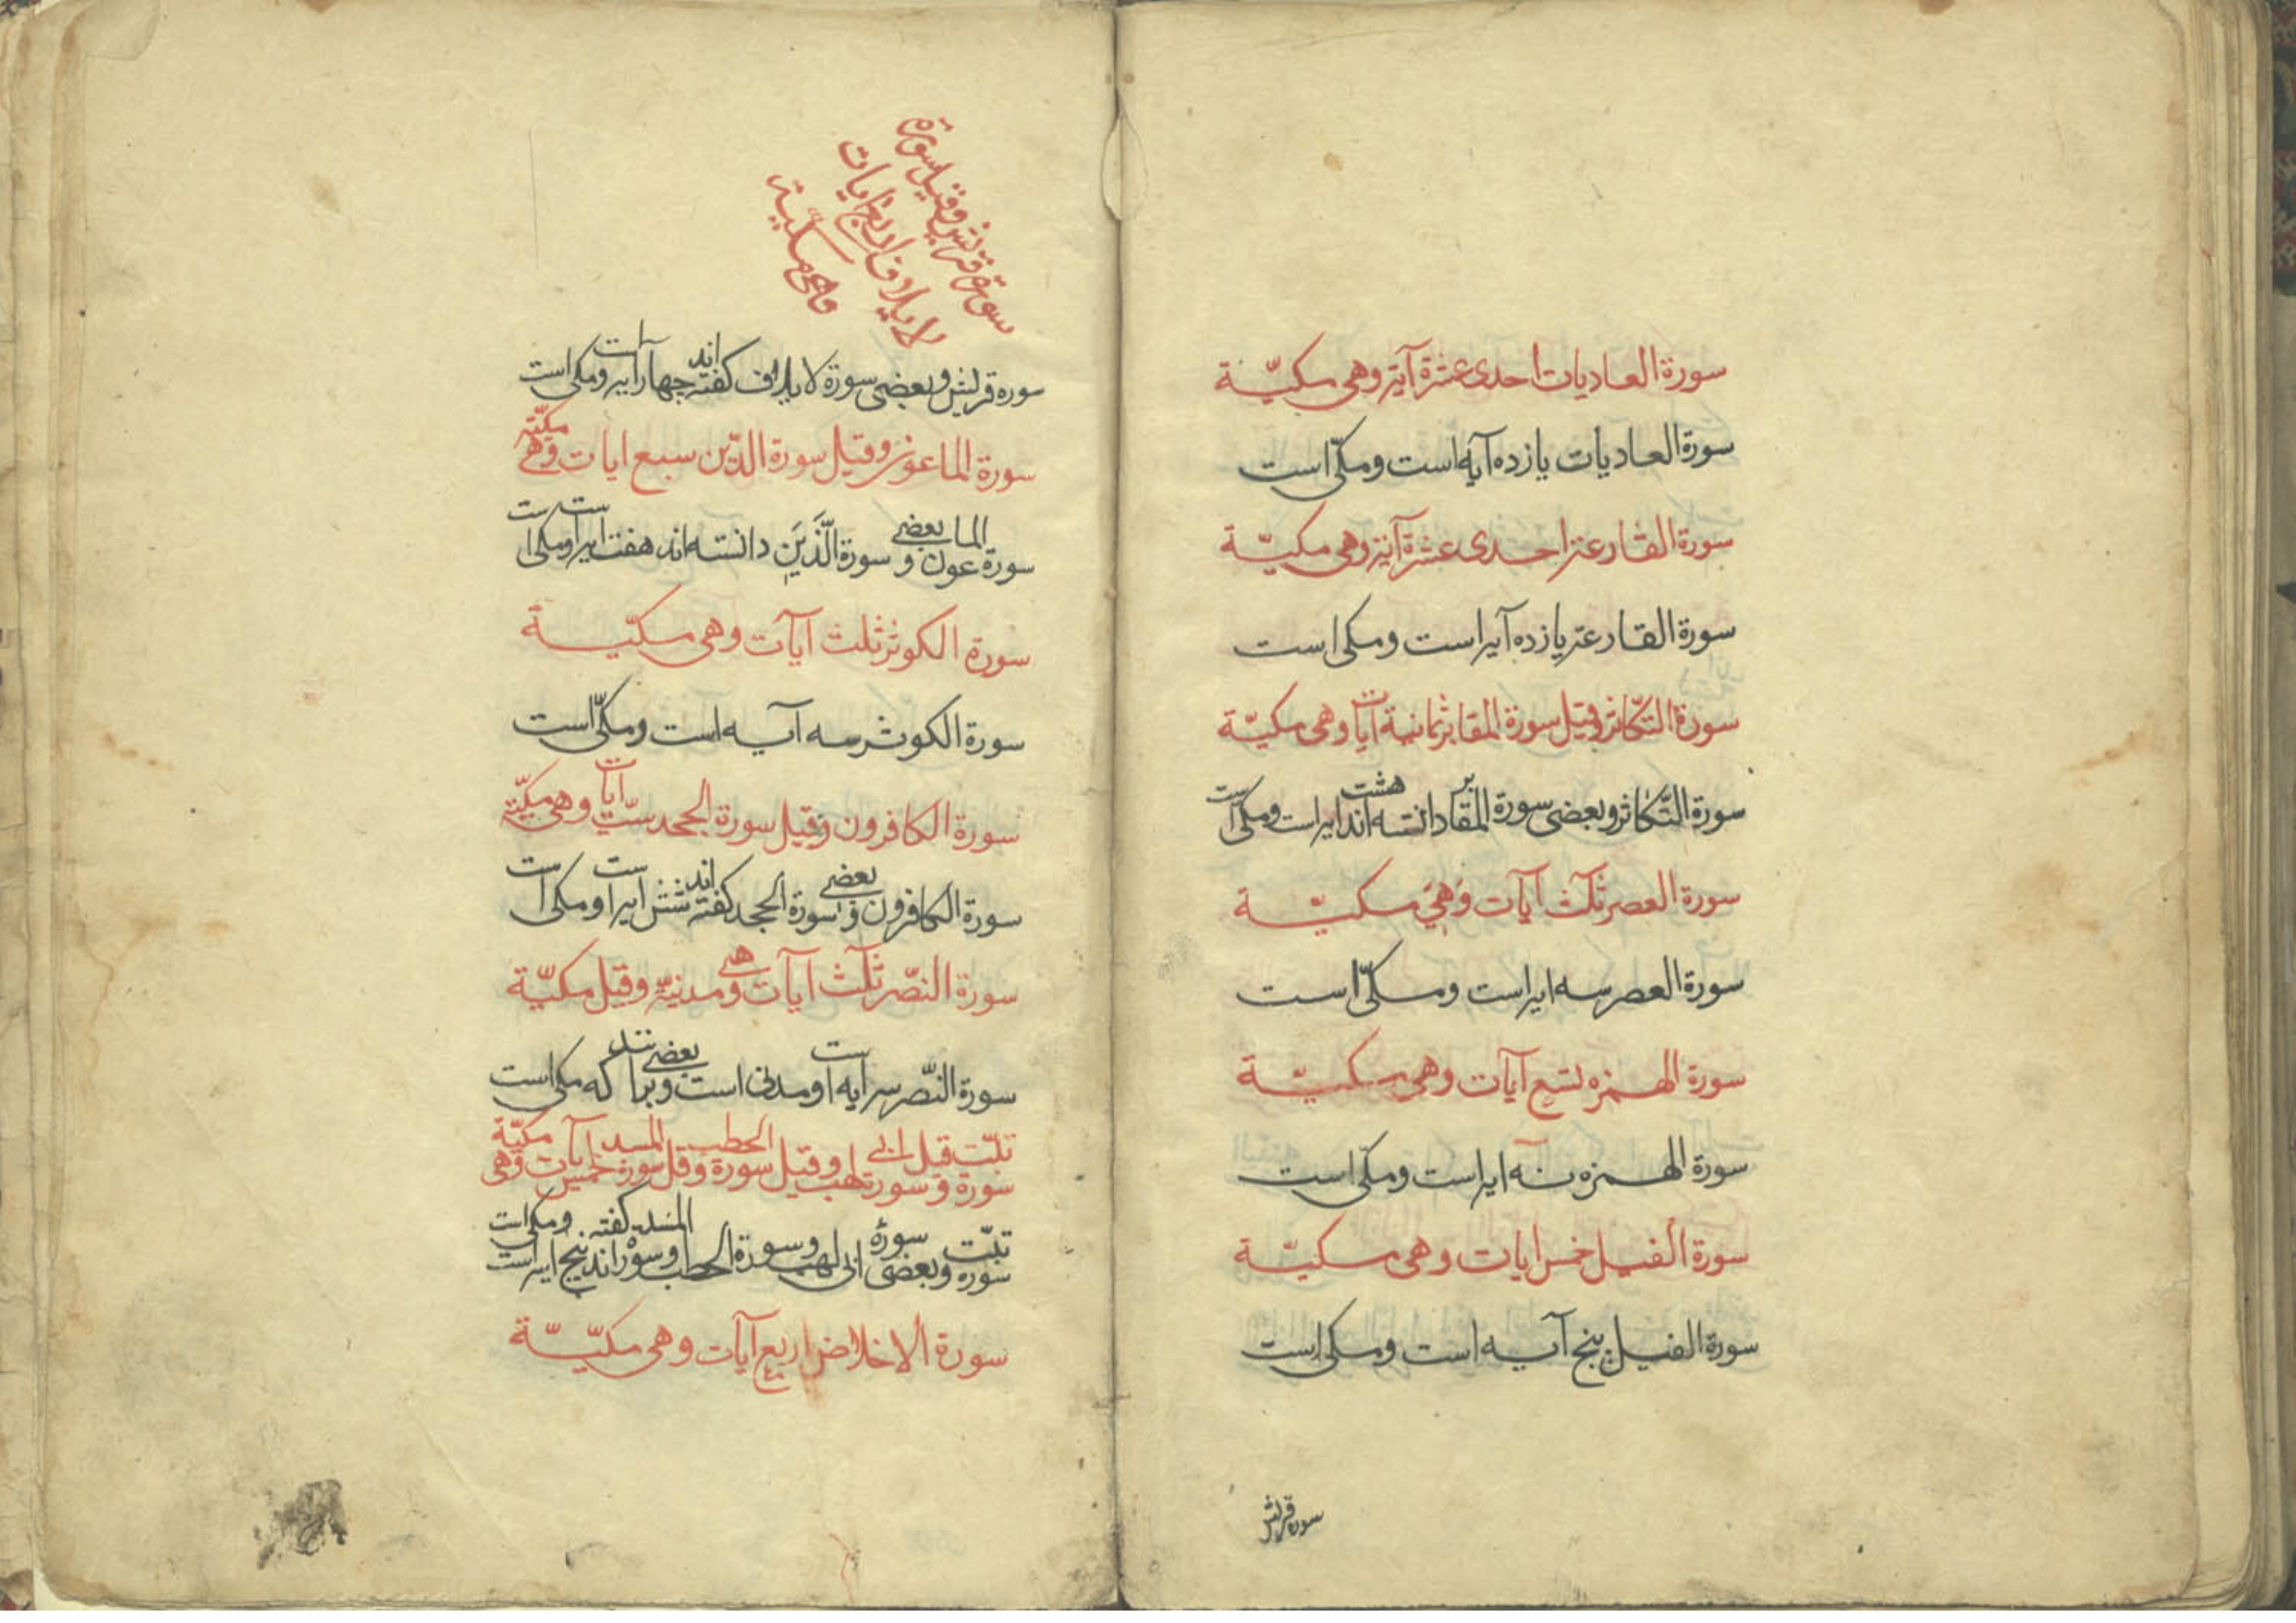 سورة العاديات احدى عشرة آية وهى مكيّة
سورة العاديات يازده آيه است ومكّى است
سورة القارعة احدى عشرة آية وهى مكيّة
سورة القارعة يازده آيه است ومكى است
سورة التّكاثر وقيل سورة المقابر ثمانية آيات وهى مكيّة
سورة التّكاثر وبعضى سورة المقابر دانسته اند هشت ايه است ومكى است
سورة العصر ثلث آيات وَهىَ مكيّة
سورة العصر سه ايه است ومكّى است
سورة الهمزه تسع آيات وهى مكيّة
سورة الهمزه نه ايه است ومكّى است
سورة الفيل خمس ايات وهى مكيّة
سورة الفيل پنج آيه است ومكى است
سوره قريش
سورة قريش وقيل سورة
لايلاف اربع ايات
وهى مكية
سوره قريش وبعضى سورة لايلاف گفته اند چهار آيه است ومكى است
سورة الماعون وقيل سورة الدّين سبع ايات وهى مكيّة
سورة الماعون وبعضى سورة الَّذَين دانسته اند هفت ايه است ومكى است
سورة الكوثر ثلث آيات وهى مكيّة
سورة الكوثر سه آيه است ومكّى است
سورة الكافرون وقيل سورة الجحد ستّ آيات وهى مكيّة
سورة الكافرون وبعضى سورة الجحد گفته اند شش ايه است ومكى است
سورة النّصر ثلث آيات وهى مدنيّة وقيل مكيّة
سورة النّصر سه ايه است ومدنى است وبعضى برانند كه مكى است
سورة تبّت وقيل سورة ابى لهب وقيل سورة الحطب وقيل سورة المسد خمس آيات وهى مكيّة
سوره تبّت وبعضى سورة ابى لهب وسورة الحطب وسورة المسد گفته اند پنج ايه است ومكى است
سورة الاخلاص اربع آيات وهى مكيّة